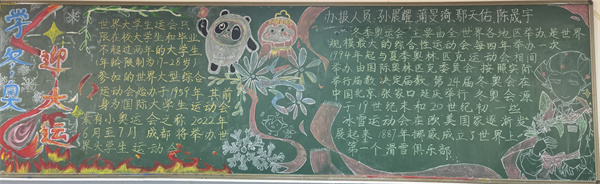 学冬奥
迎大运
世界大学生运动会只
限在校大学生和毕业
不超过两年的大学生
(年龄限制为17-28岁)
参加的世界大型综合
运动会始于1959年其前
身为国际大学生运动会
素有小奥运会之称2022年
6月至7月成都将举办世
界大学生运动会
办报人员:孙晨耀 蒲旻漪 鄢天佑 陈晟宇
"冬季奥运会"主要由全世界各地区举办,是世界
规模最大的综合性运动会每四年举办一次
1994年起与夏季奥林匹克运动会相间
举办由国际奥林匹克委员会 按照实际
举行届数决定届数.第24届冬奥会在
中国北京,张家口延庆举行 冬奥会源
于19世纪末和20世纪初一些
冰雪运动在欧美国家逐渐发
展起来.1887年挪威成立了世界上
第一个滑雪俱乐部.